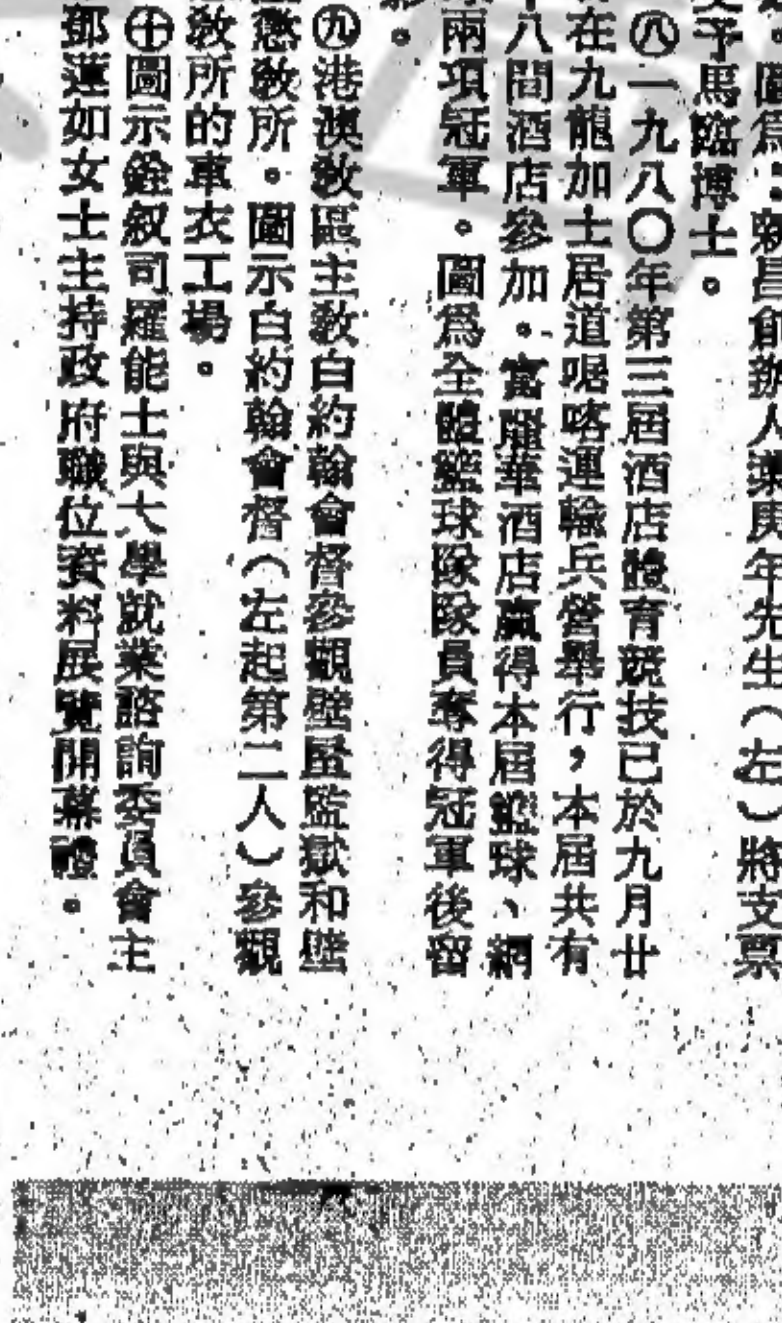 。圖爲：新昌創辦人葉庚年先生（左）將支票
交予馬臨博士。
㊇一九八〇年第三屆酒店體育競技已於九月廿
在九龍加士居道喼咯運輸兵營舉行，本屆共有
十八間酒店參加。富麗華酒店贏得本屆籃球、網
球兩項冠軍。圖爲全體籃球隊隊員奪得冠軍後留
影。
㊈港澳敎區主敎白約翰會督參觀壁屋監獄和壁
屋懲敎所。圖示白約翰會督（左起第二人）參觀
懲敎所的車衣工場。
㊉圖示銓叙司羅能士與大學就業諮詢委員會主
鄧蓮如女士主持政府職位資料展覽開幕禮。